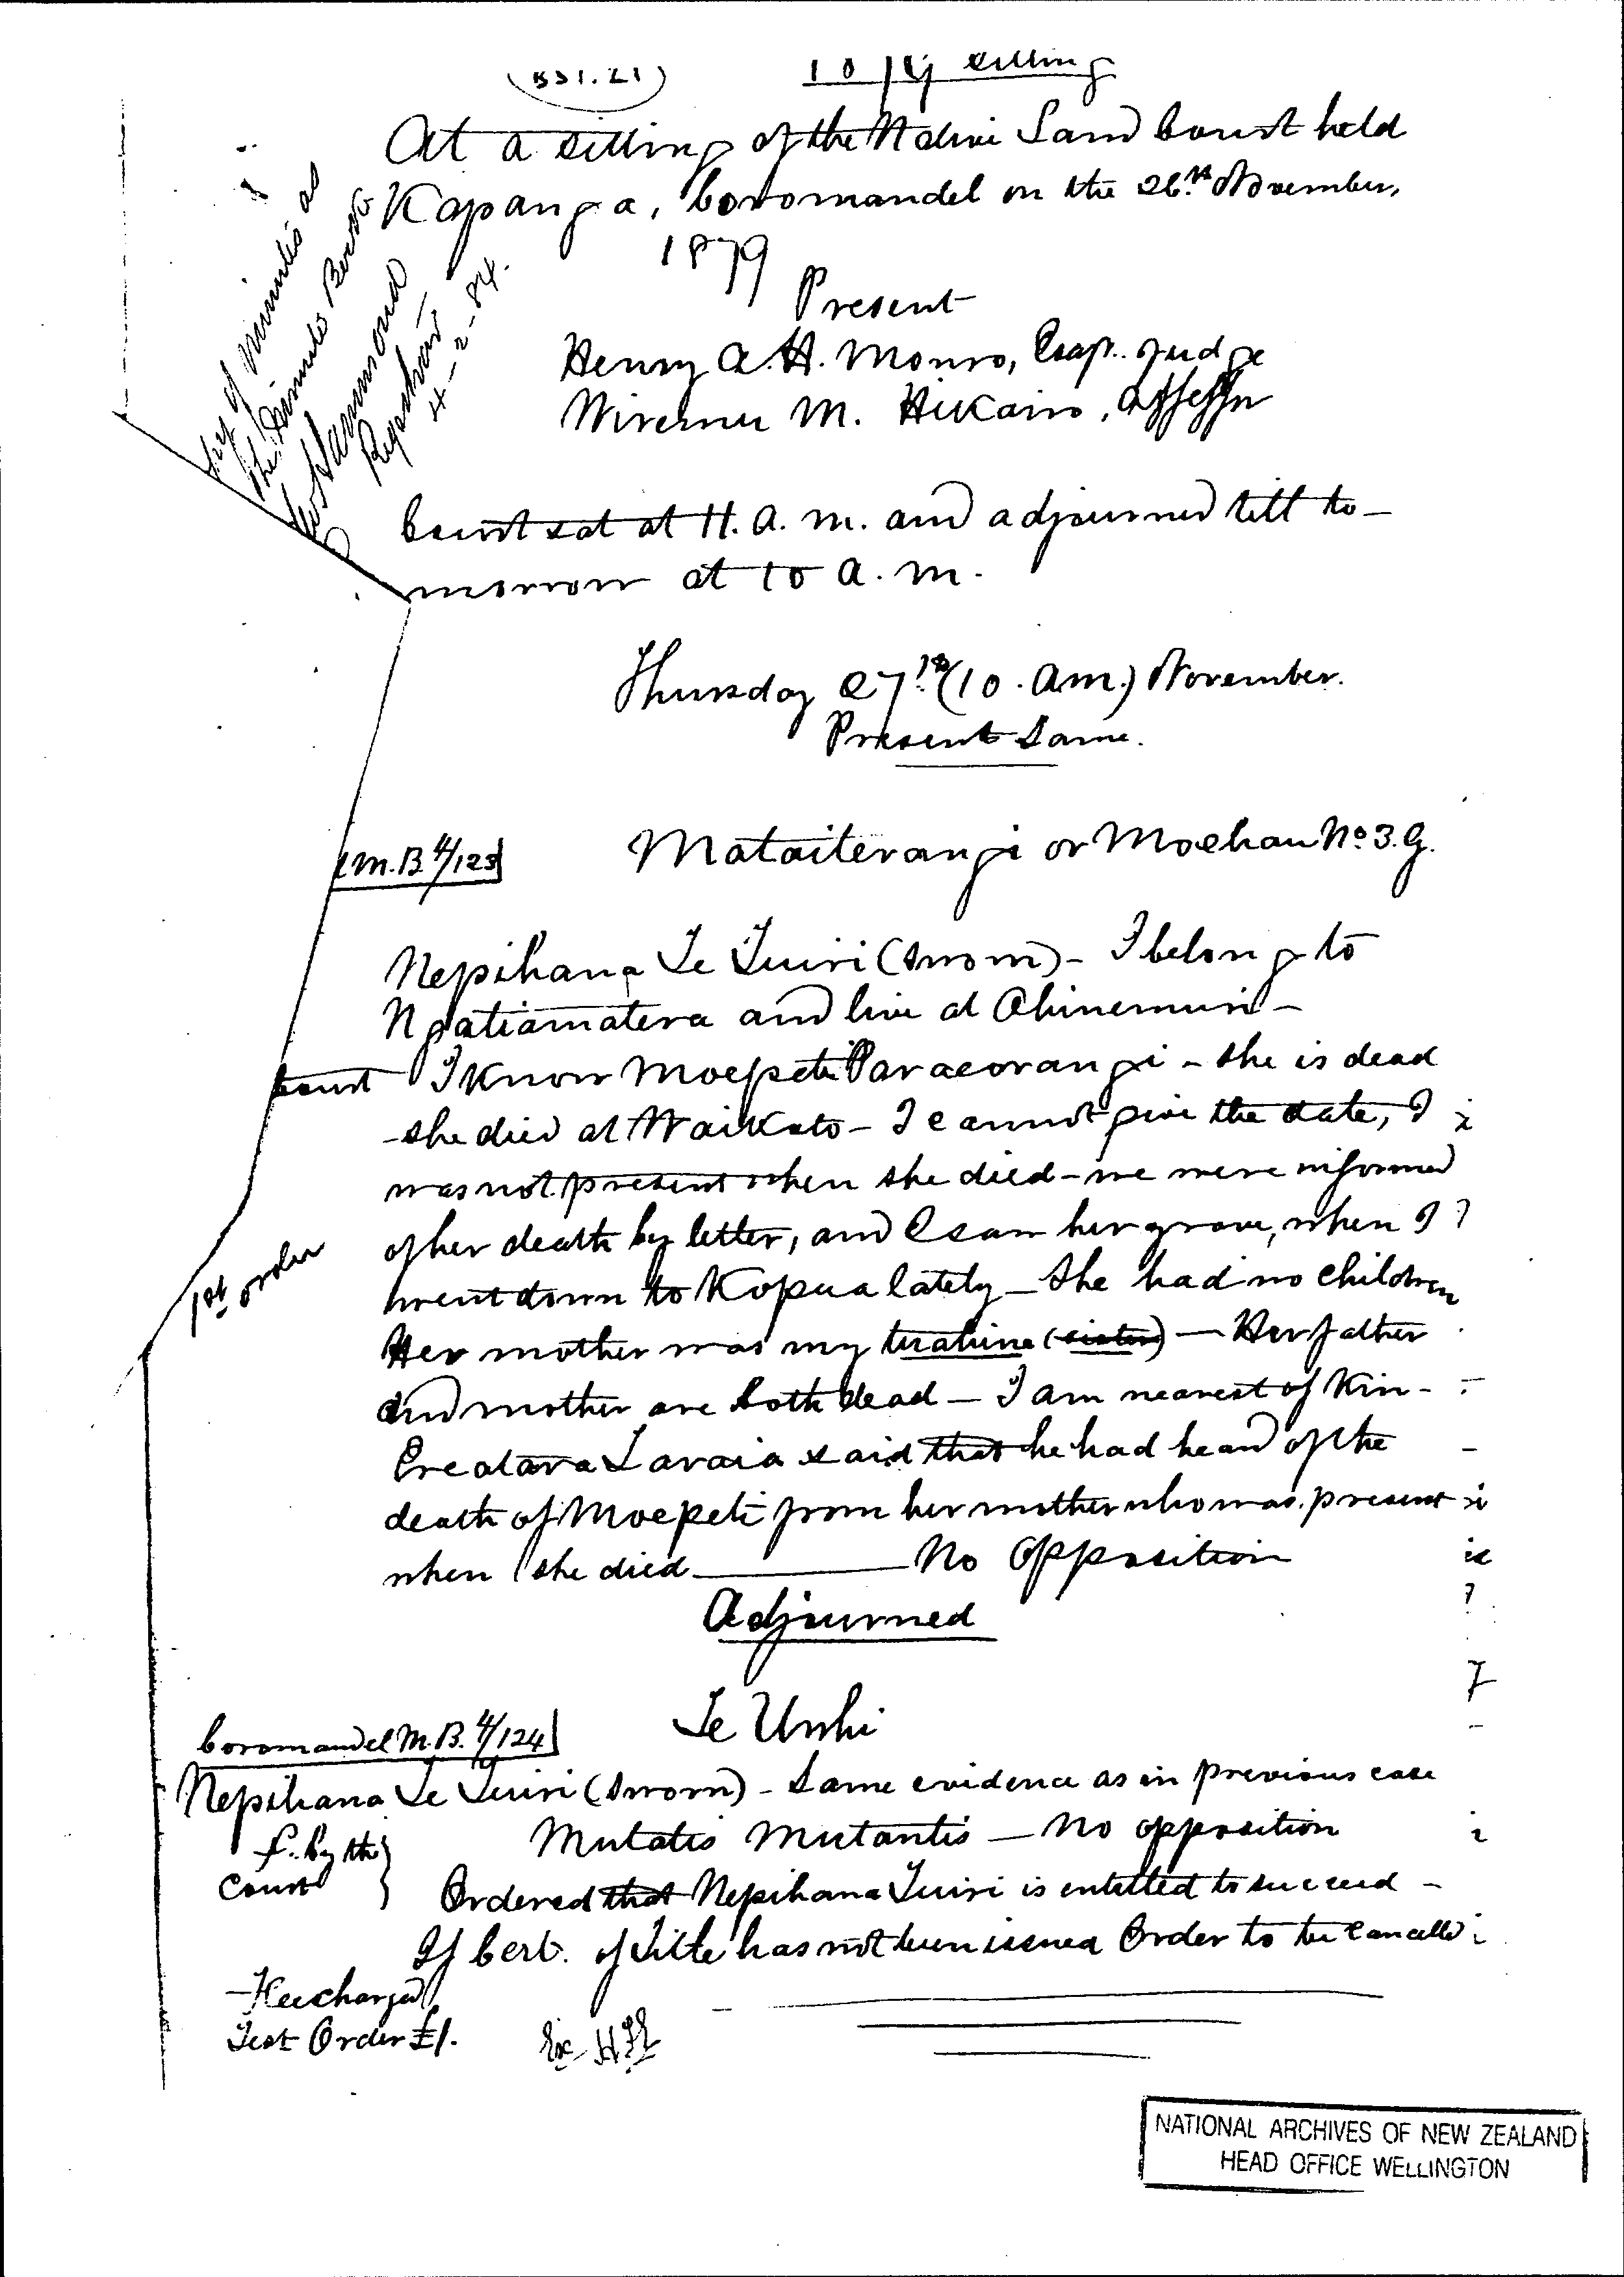 (BS1.21)
1879 sitting
At a sitting of the Native Land Court held
Kapanga, Coromandel on the 26th November,
1879
Present
Henry A. H. Monro, Esqr. Judge
Wiremu M. Hikairo, Assessor
of minutes as
the Minute Book
Hammond
Registrar
4-2-84.
Court sat at 11. a. m. and adjourned till to-
morrow at 10 a. m.
Thursday 27th (10. a.m.) November.
Present Same.
M.B. 4/123
Mataiterangi or Moehau No 3.G.
Nepihana Te Tuiri (sworn) - I belong to
Ngatiamatera and live at Ohinemuri -
Court I know Moepeti Paraeorangi - she is dead
- she died at Waikato - I cannot give the date, I
was not present when she died - we were informed
of her death by letter, and I saw her grave, when I
1st order
went down to Kopua lately - She had no children
Her mother was my tuahine (sister) - Her father
and mother are both dead - I am nearest of kin -
Ereatara Taraia said that he had heard of the
death of Moepeti from her mother who was present
when she died ——— No Opposition
Adjourned
Te Umhi
Coromandel M.B. 4/124
Nepihana Te Tuiri (sworn) - Same evidence as in previous case
Mutatis Mutantis - No opposition
f. by the
Court
Ordered that Nepihana Tuiri is entitled to succeed -
If Cert. of Title has not been issued Order to be Cancelled
Fee charged
Test Order £1.
Ex
NATIONAL ARCHIVES OF NEW ZEALAND
HEAD OFFICE WELLINGTON